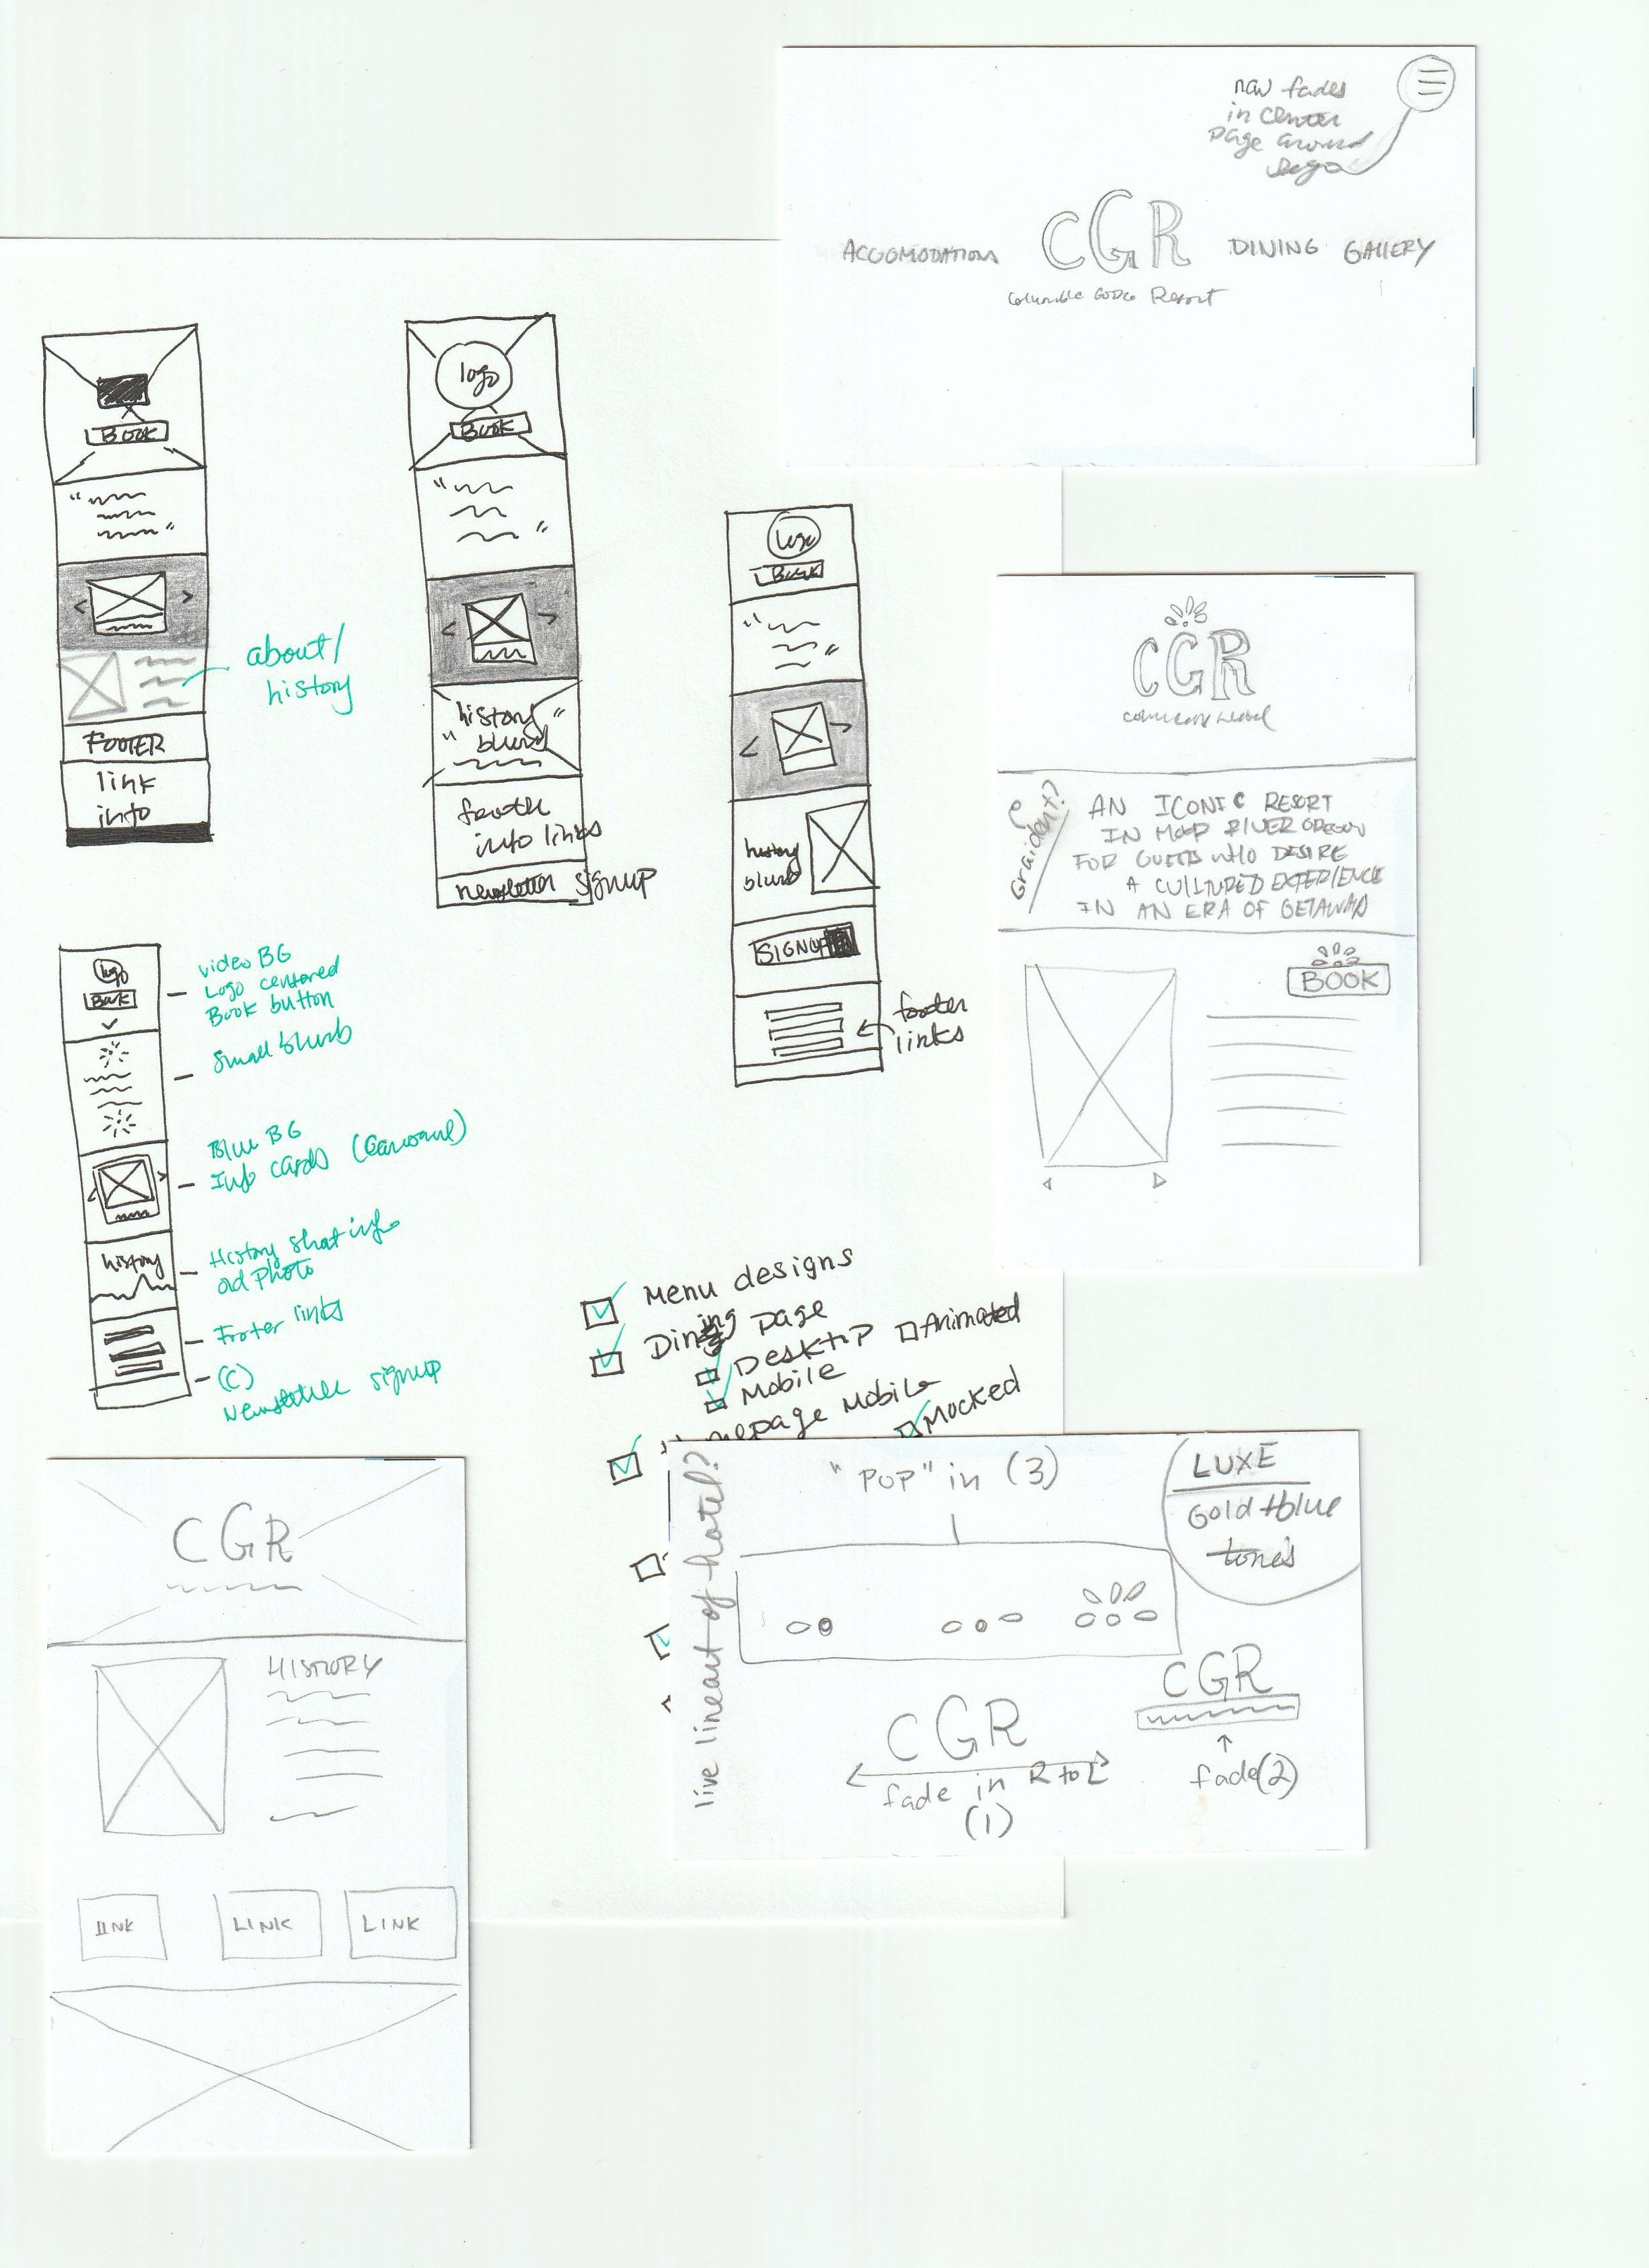 nav fades
in center
page around
logo
ACCOMODATIONS
CGR
DINING GALLERY
Resort
BOOK
"
"
<
>
about/
history
FOOTER
link
info
logo
BOOK
"
"
<
>
history "
" blurb
info links
newsletter signup
logo
Book
"
"
<
>
history
blurb
SIGNUP
footer
links
CGR
Graident?
AN ICONIC RESORT
IN HOOD RIVER OREGON
FOR GUESTS WHO DESIRE
A CULTURED EXPERIENCE
IN AN ERA OF GETAWAYS
BOOK
logo
Book
video BG
Logo centered
Book button
Small blurb
Blue BG
Info cards (Carousel)
<
>
history
History short info
old photo
Footer links
(C)
Newsletter signup
Menu designs
Dining page
Desktop Animated
Mobile
mepage Mobile
Mocked
CGR
HISTORY
LINK
LINK
LINK
live lineart of hotel?
"POP" in (3)
LUXE
Gold + blue
tones
CGR
fade in R to L
(1)
CGR
fade (2)